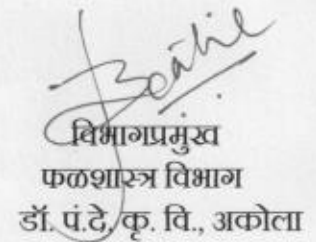 विभागप्रमुख
फळशास्त्र विभाग
डॉ. पं.दे. कृ. वि., अकोला